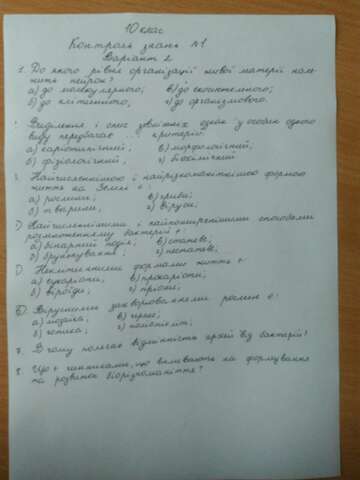 10 клас
Контроль знань №1
Варіант 2
1. До якого рівня організації живої матерії нале-
жить нейрон?
а) до молекулярного; в) до екосистемного;
б) до клітинного; г) до організмового.
Виділення і опис двійних ознак у особин одного
виду передбачає критерій:
а) каріотипічний; в) морфологічний;
б) фізіологічний; г) біохімічний
Найчисленнішою і найрізноманітнішою формою
життя на Землі є:
а) рослини; в) гриби;
б) тварини; г) віруси;
Найчисленнішими і найпоширенішими способами
розмноженням бактерій є:
а) бінарний поділ; в) статеве;
б) брунькування; г) нестатеве;
Неклітинними формами життя є:
а) еукаріоти; в) прокаріоти;
б) віроїди; г) пріони;
Вірусними захворюваннями рослин є:
а) мозаїка; в) герпес;
б) чепика; г) поліомієліт;
7. В чому полягає відмінність архей від бактерій?
8. Що є чинниками, що впливають на формування
та розвиток біорізноманіття?